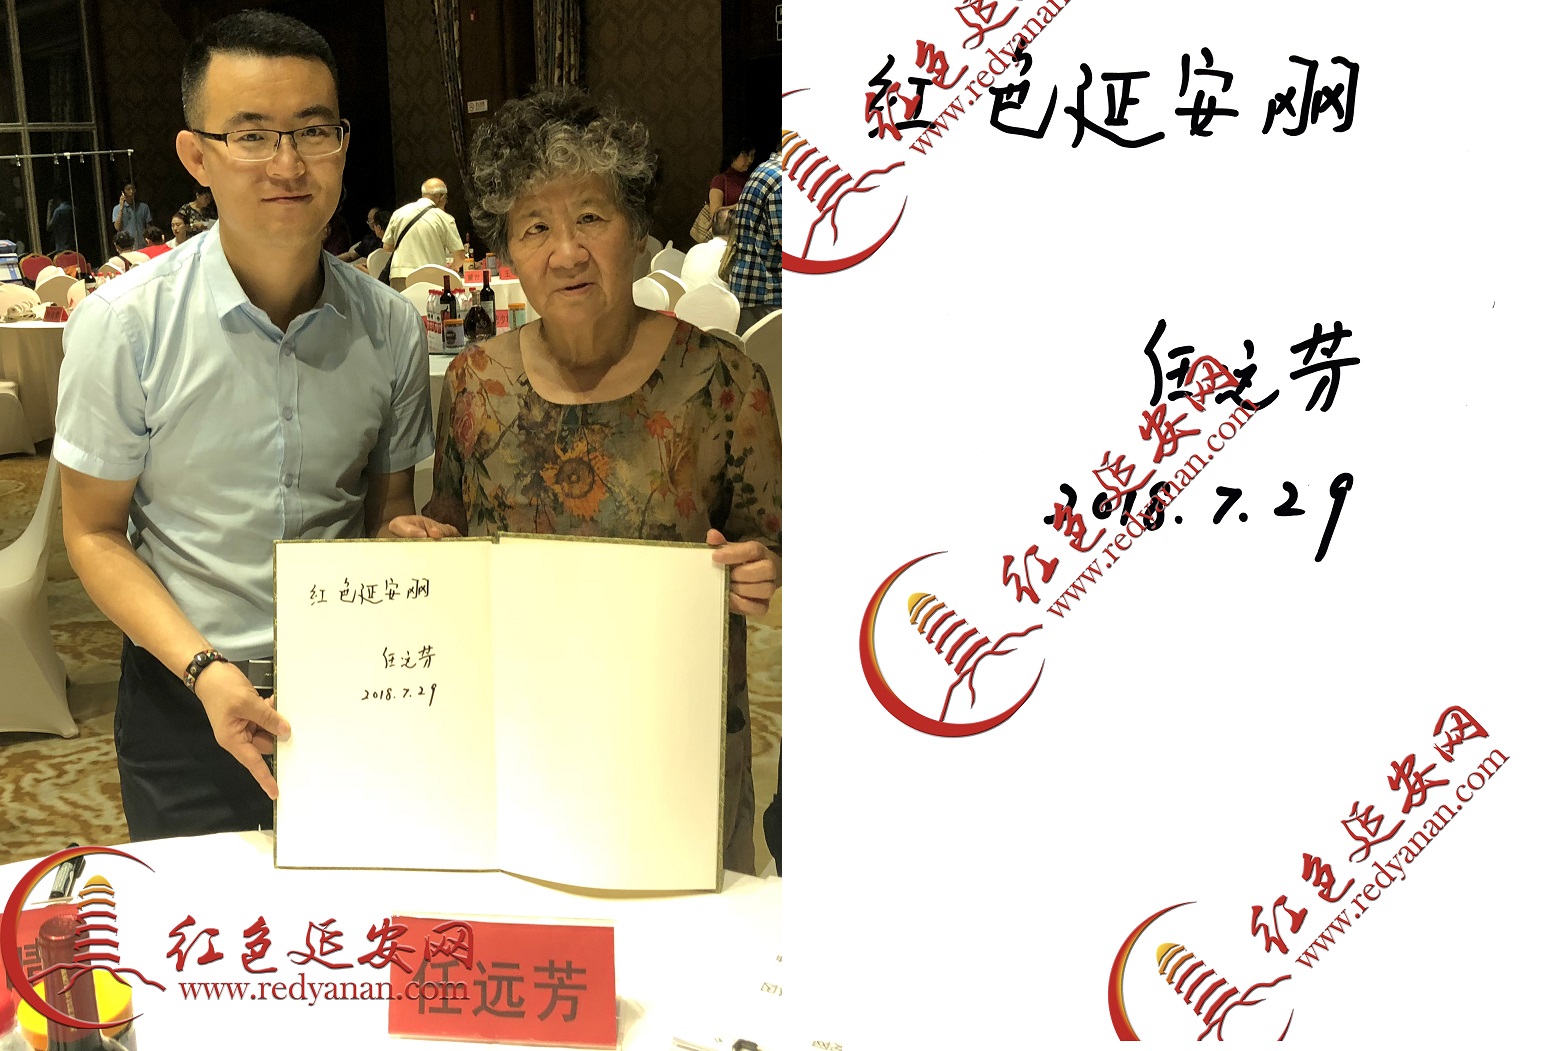 红色延安网
任远芳
2018.7.29
红色延安网
www.redyanan.com
任远芳
红色延安网
www.redyanan.com
红色延安网
任远芳
2018.7.29
红色延安网
www.redyanan.com
红色延安网
www.redyanan.com